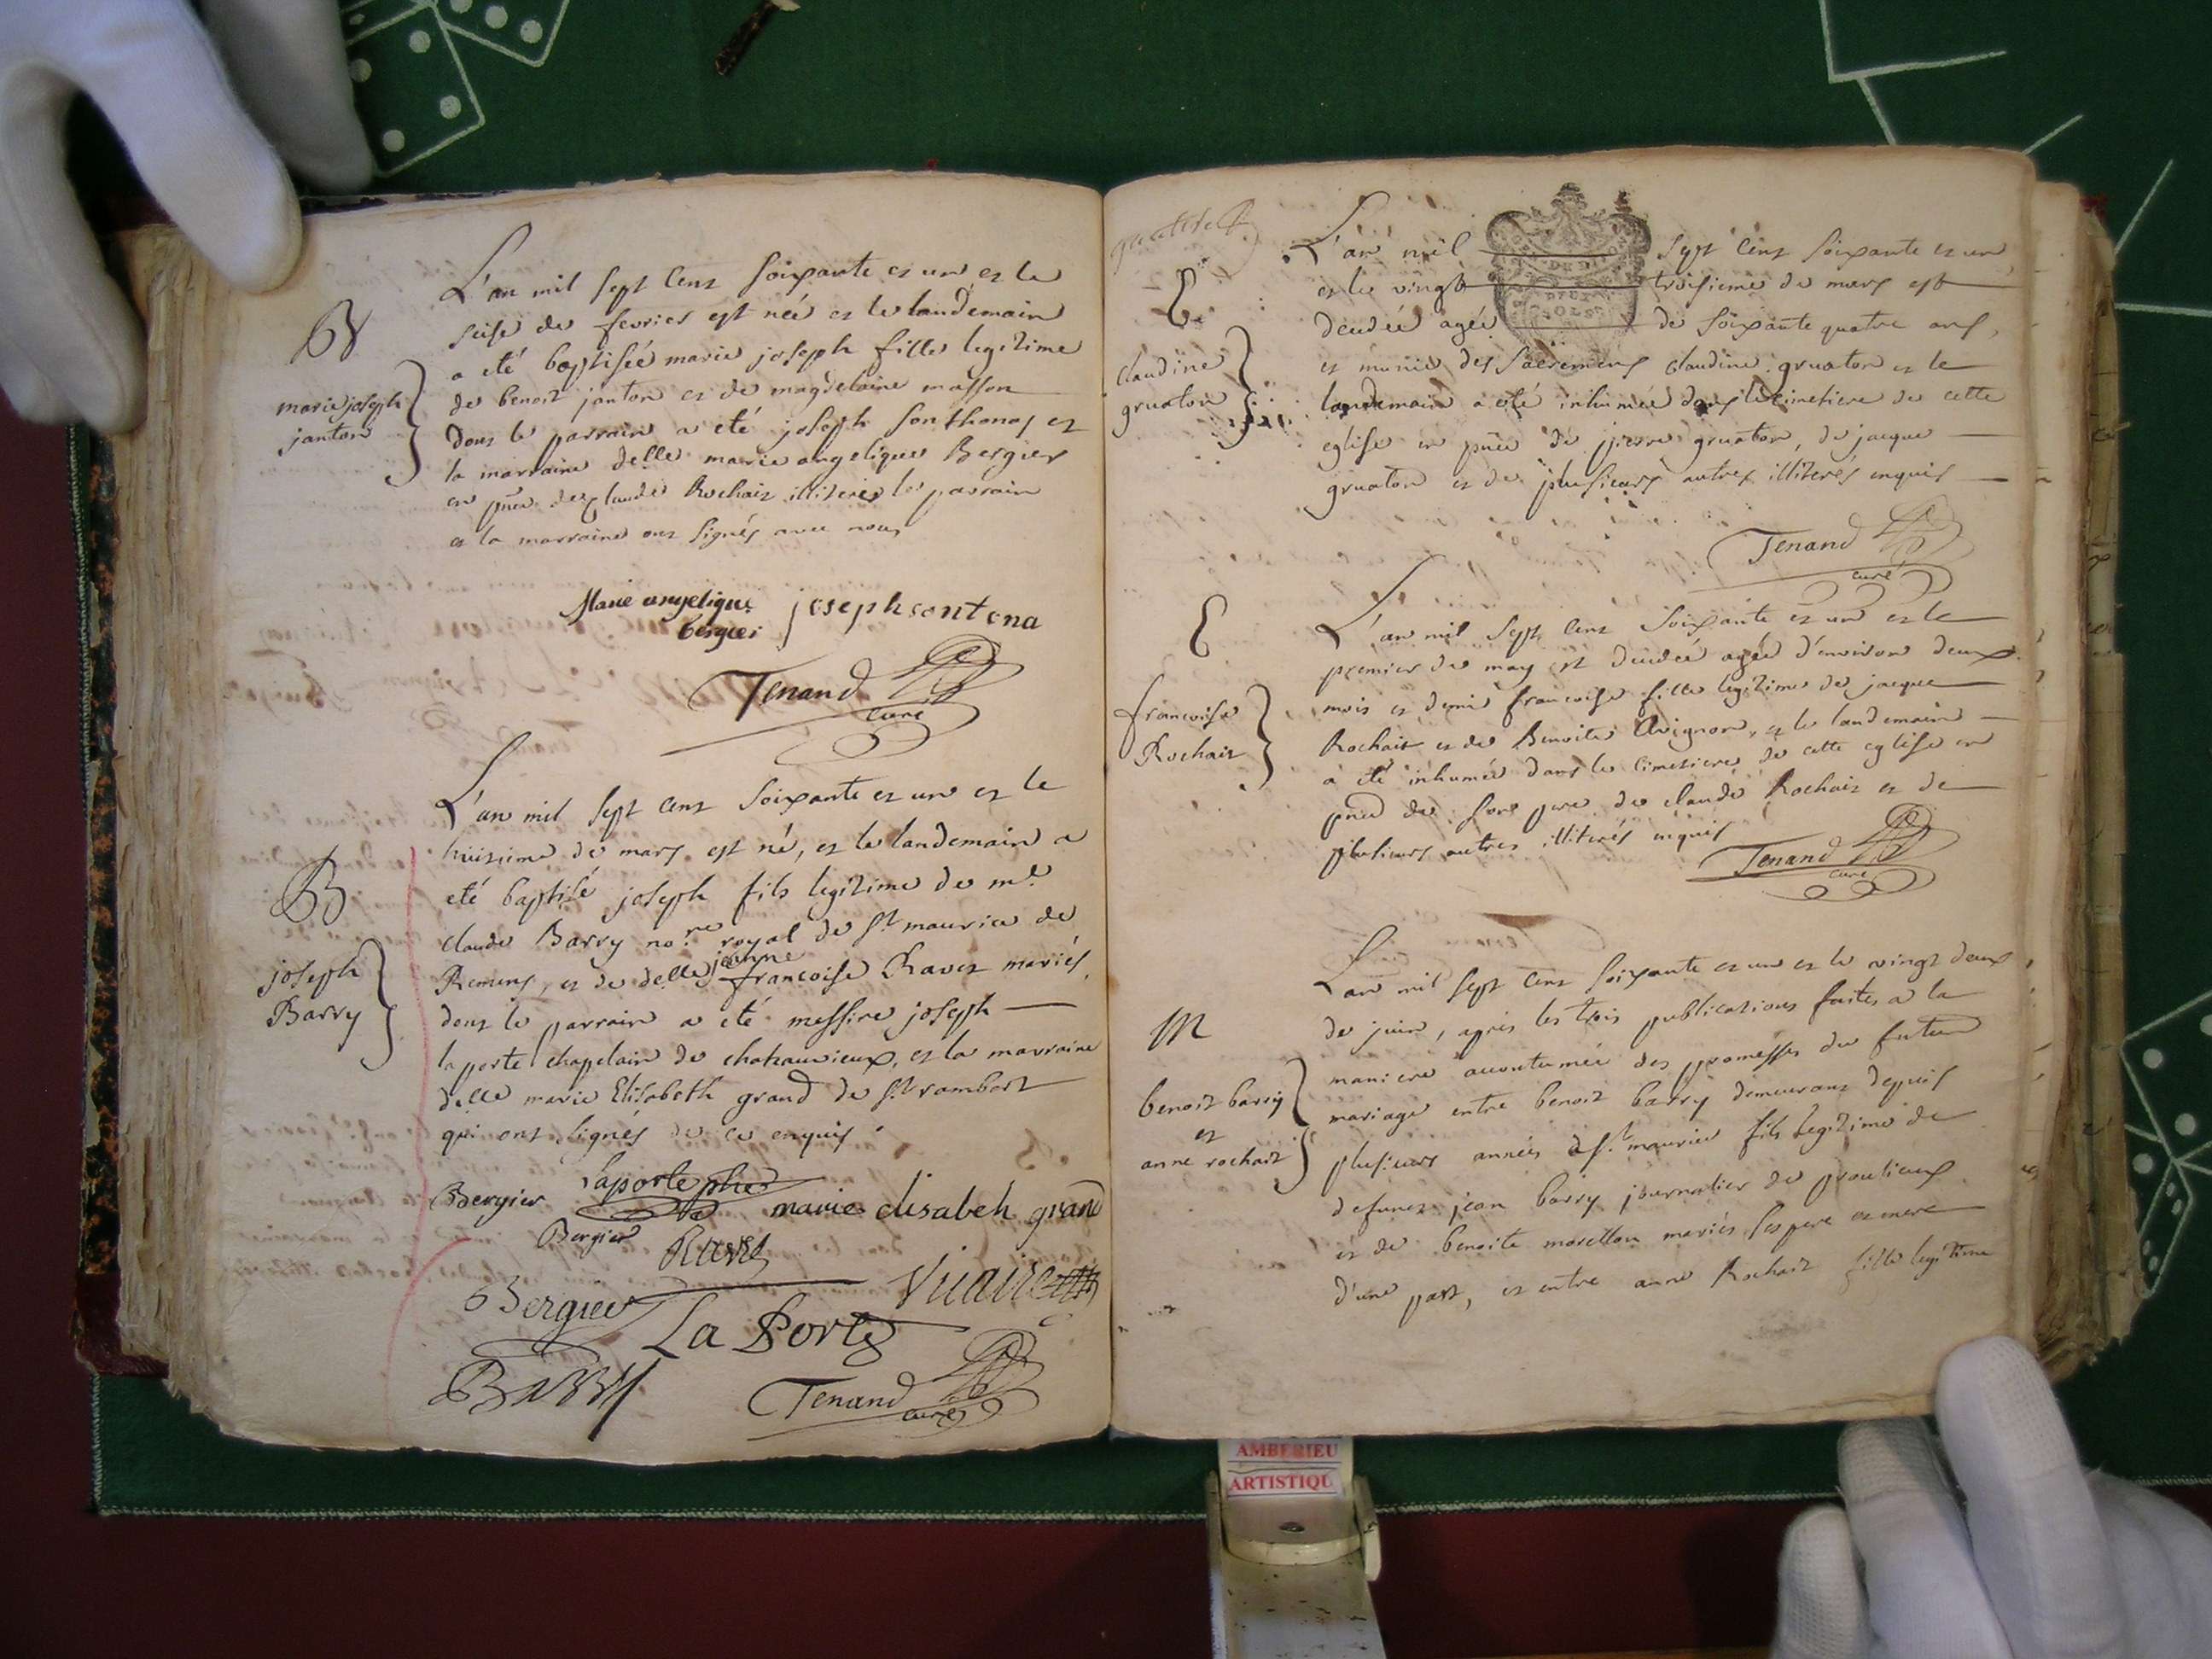 B
marie joseph
janton
L'an mil sept cent soixante et un et le
seise de fevrier est née et le landemain
a eté baptisée marie joseph fille legitime
de benoit janton et de magdelaine masson
dont le parrain a eté joseph sonthonas et
la marraine delle marie angelique Bergier
en pñce de claude Rochait illiteré le parrain
et la marraine ont signés avec nous
Marie angelique
bergier
joseph sontona
Tenand
curé
B
joseph
Barry
L'an mil sept cent soixante et un et le
huitieme de mars est né, et le landemain a
eté baptisé joseph fils legitime de me
claude Barry nore royal de st maurice de
Remens, et de delle jeanne francoise Ravet mariés,
dont le parrain a eté messire joseph
laporte chapelain de chatauvieux, et la marraine
delle marie Elisabeth grand de st rambert
qui ont signés de ce enquis.
Bergier
Laporte
marie elisabeh grand
Bergier
Ravet
Bergier
La Porte
Barry
Tenand
curé
E
claudine
gruaton
L'an mil sept cent soixante et un
et le vingt troisieme de mars est
decedée agée de soixante quatre ans,
et munie des sacremens claudine gruaton et le
landemain a eté inhumée dans le cimetiere de cette
eglise en pñce de pierre gruaton, de jacque
gruaton et de plusieurs autres illiterés enquis
Tenand
curé
E
francoise
Rochait
L'an mil sept cent soixante et un et le
premier de may est decedée agée d'environ deux
mois et demi francoise fille legitime de jacque
Rochait et de Benoite Avignon, et le landemain
a eté inhumée dans le cimetiere de cette eglise en
pñce de son pere de claude Rochait et de
plusieurs autres illiterés enquis
Tenand
curé
M
benoit barry
et
anne rochait
L'an mil sept cent soixante et un et le vingt deux
de juin, après les trois publications faites a la
maniere accoutumée des promesses du futur
mariage entre benoit barry demeurant depuis
plusieurs années a st maurice fils legitime de
defunct jean barry journalier de proulieux
et de benoite morellon mariés ses pere et mere
d'une part, et entre anne Rochait fille legitime
AMBERIEU
ARTISTIQU